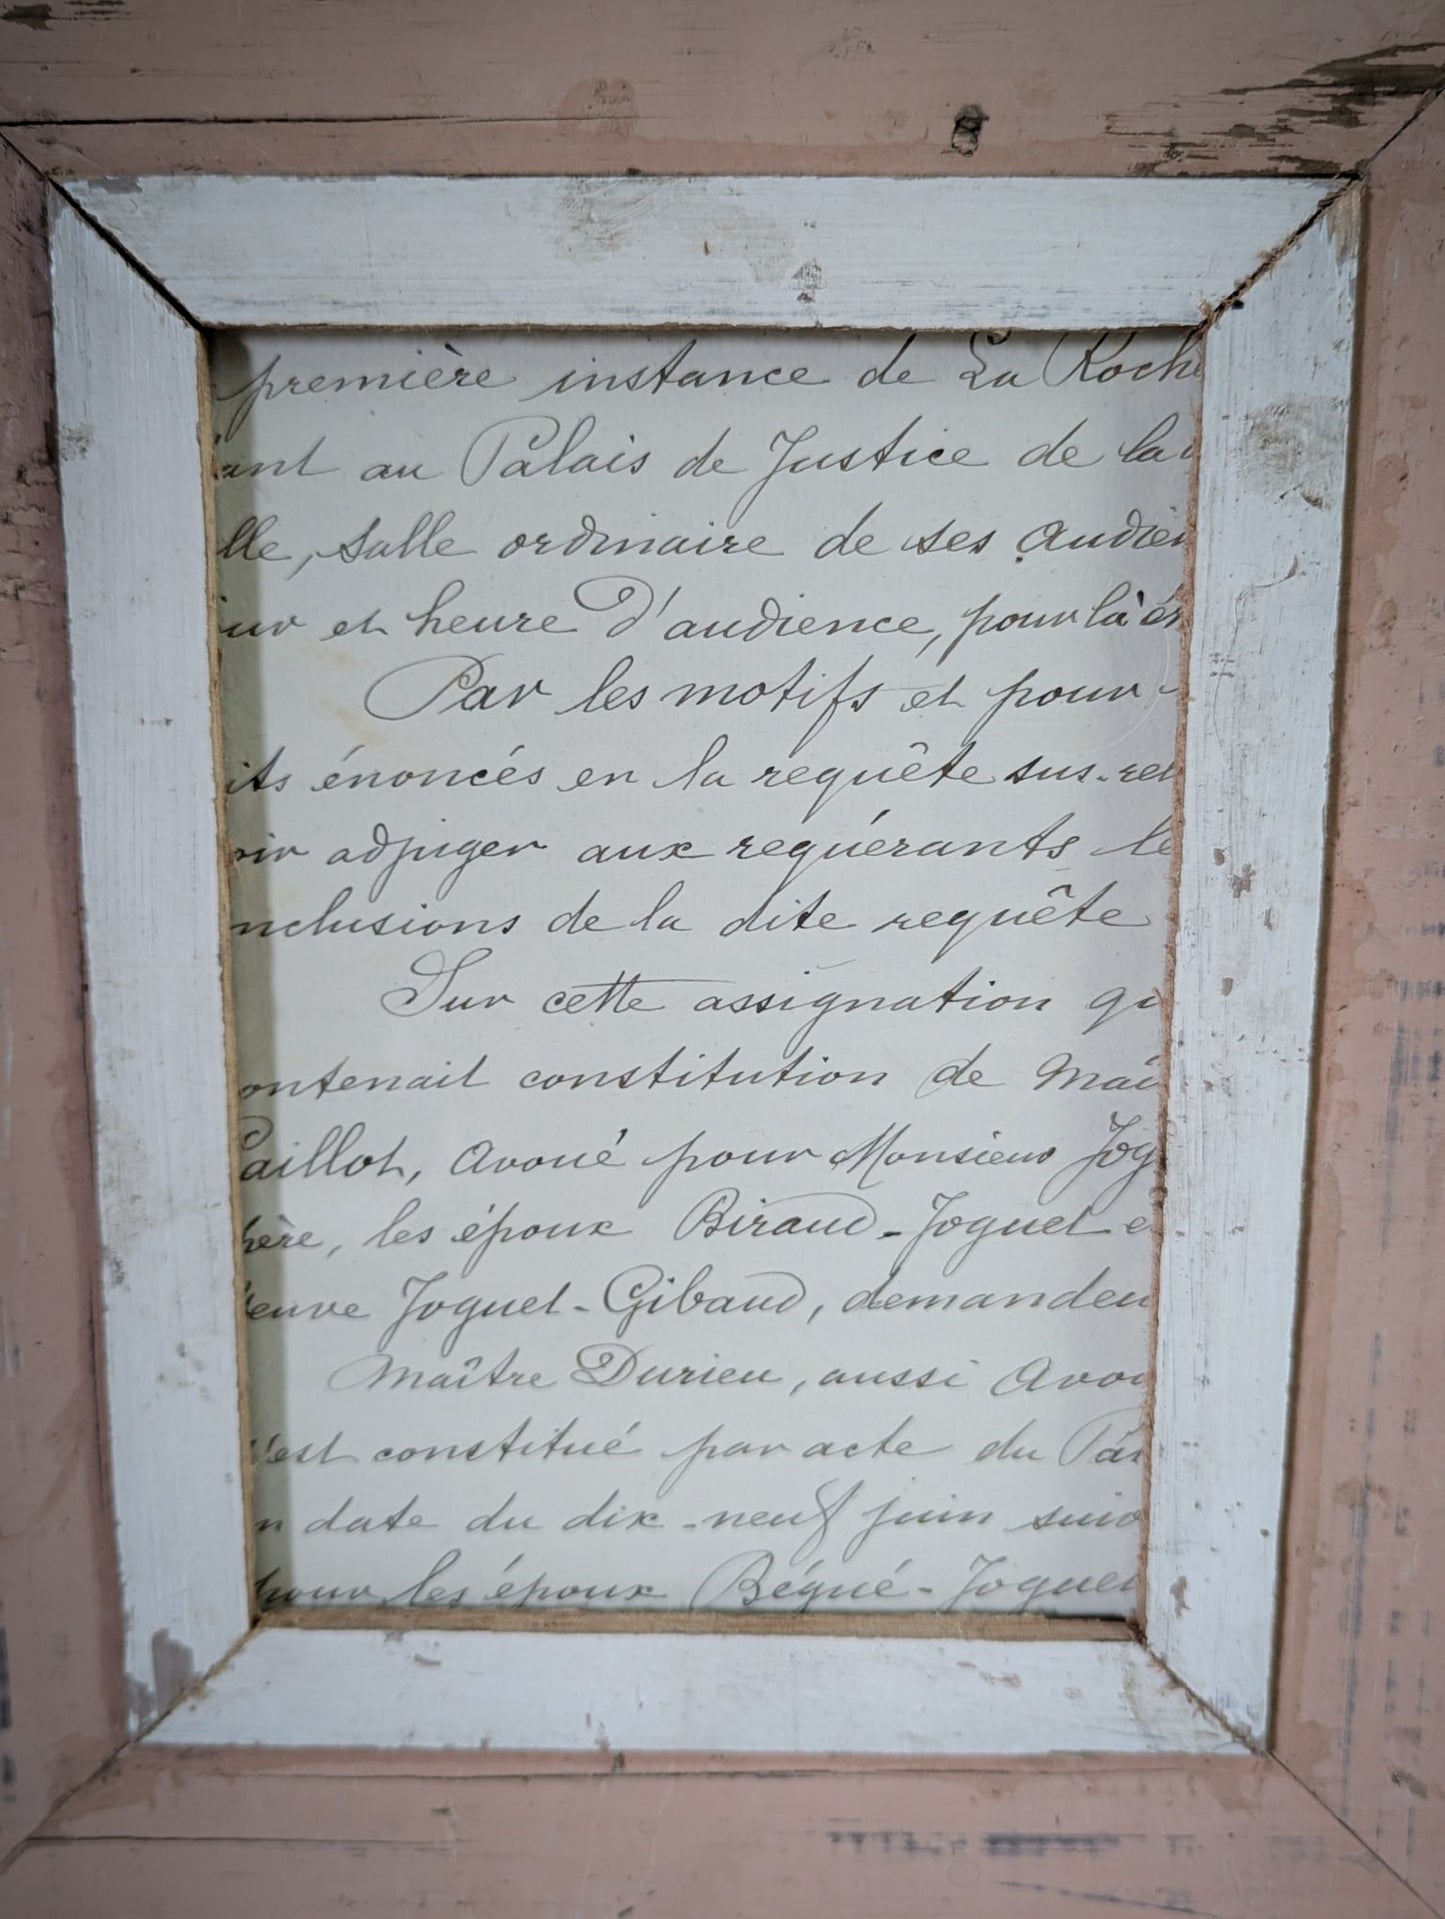 première instance de La Roche
ant au Palais de Justice de la
lle, salle ordinaire de ses audien
ur et heure d'audience, pour là
Par les motifs et pour
its énoncés en la requête sus-rel
oir adjuger aux requérants le
nclusions de la dite requête
Sur cette assignation qu
ontenait constitution de Maî
Paillot, avoué pour Monsieur Jog
hère, les époux Biraud-Joguet e
Veuve Joguet-Gibaud, demandeu
Maître Durieu, aussi Avou
s'est constitué par acte du Pa
n date du dix-neuf juin suiv
pour les époux Bégué-Joguet